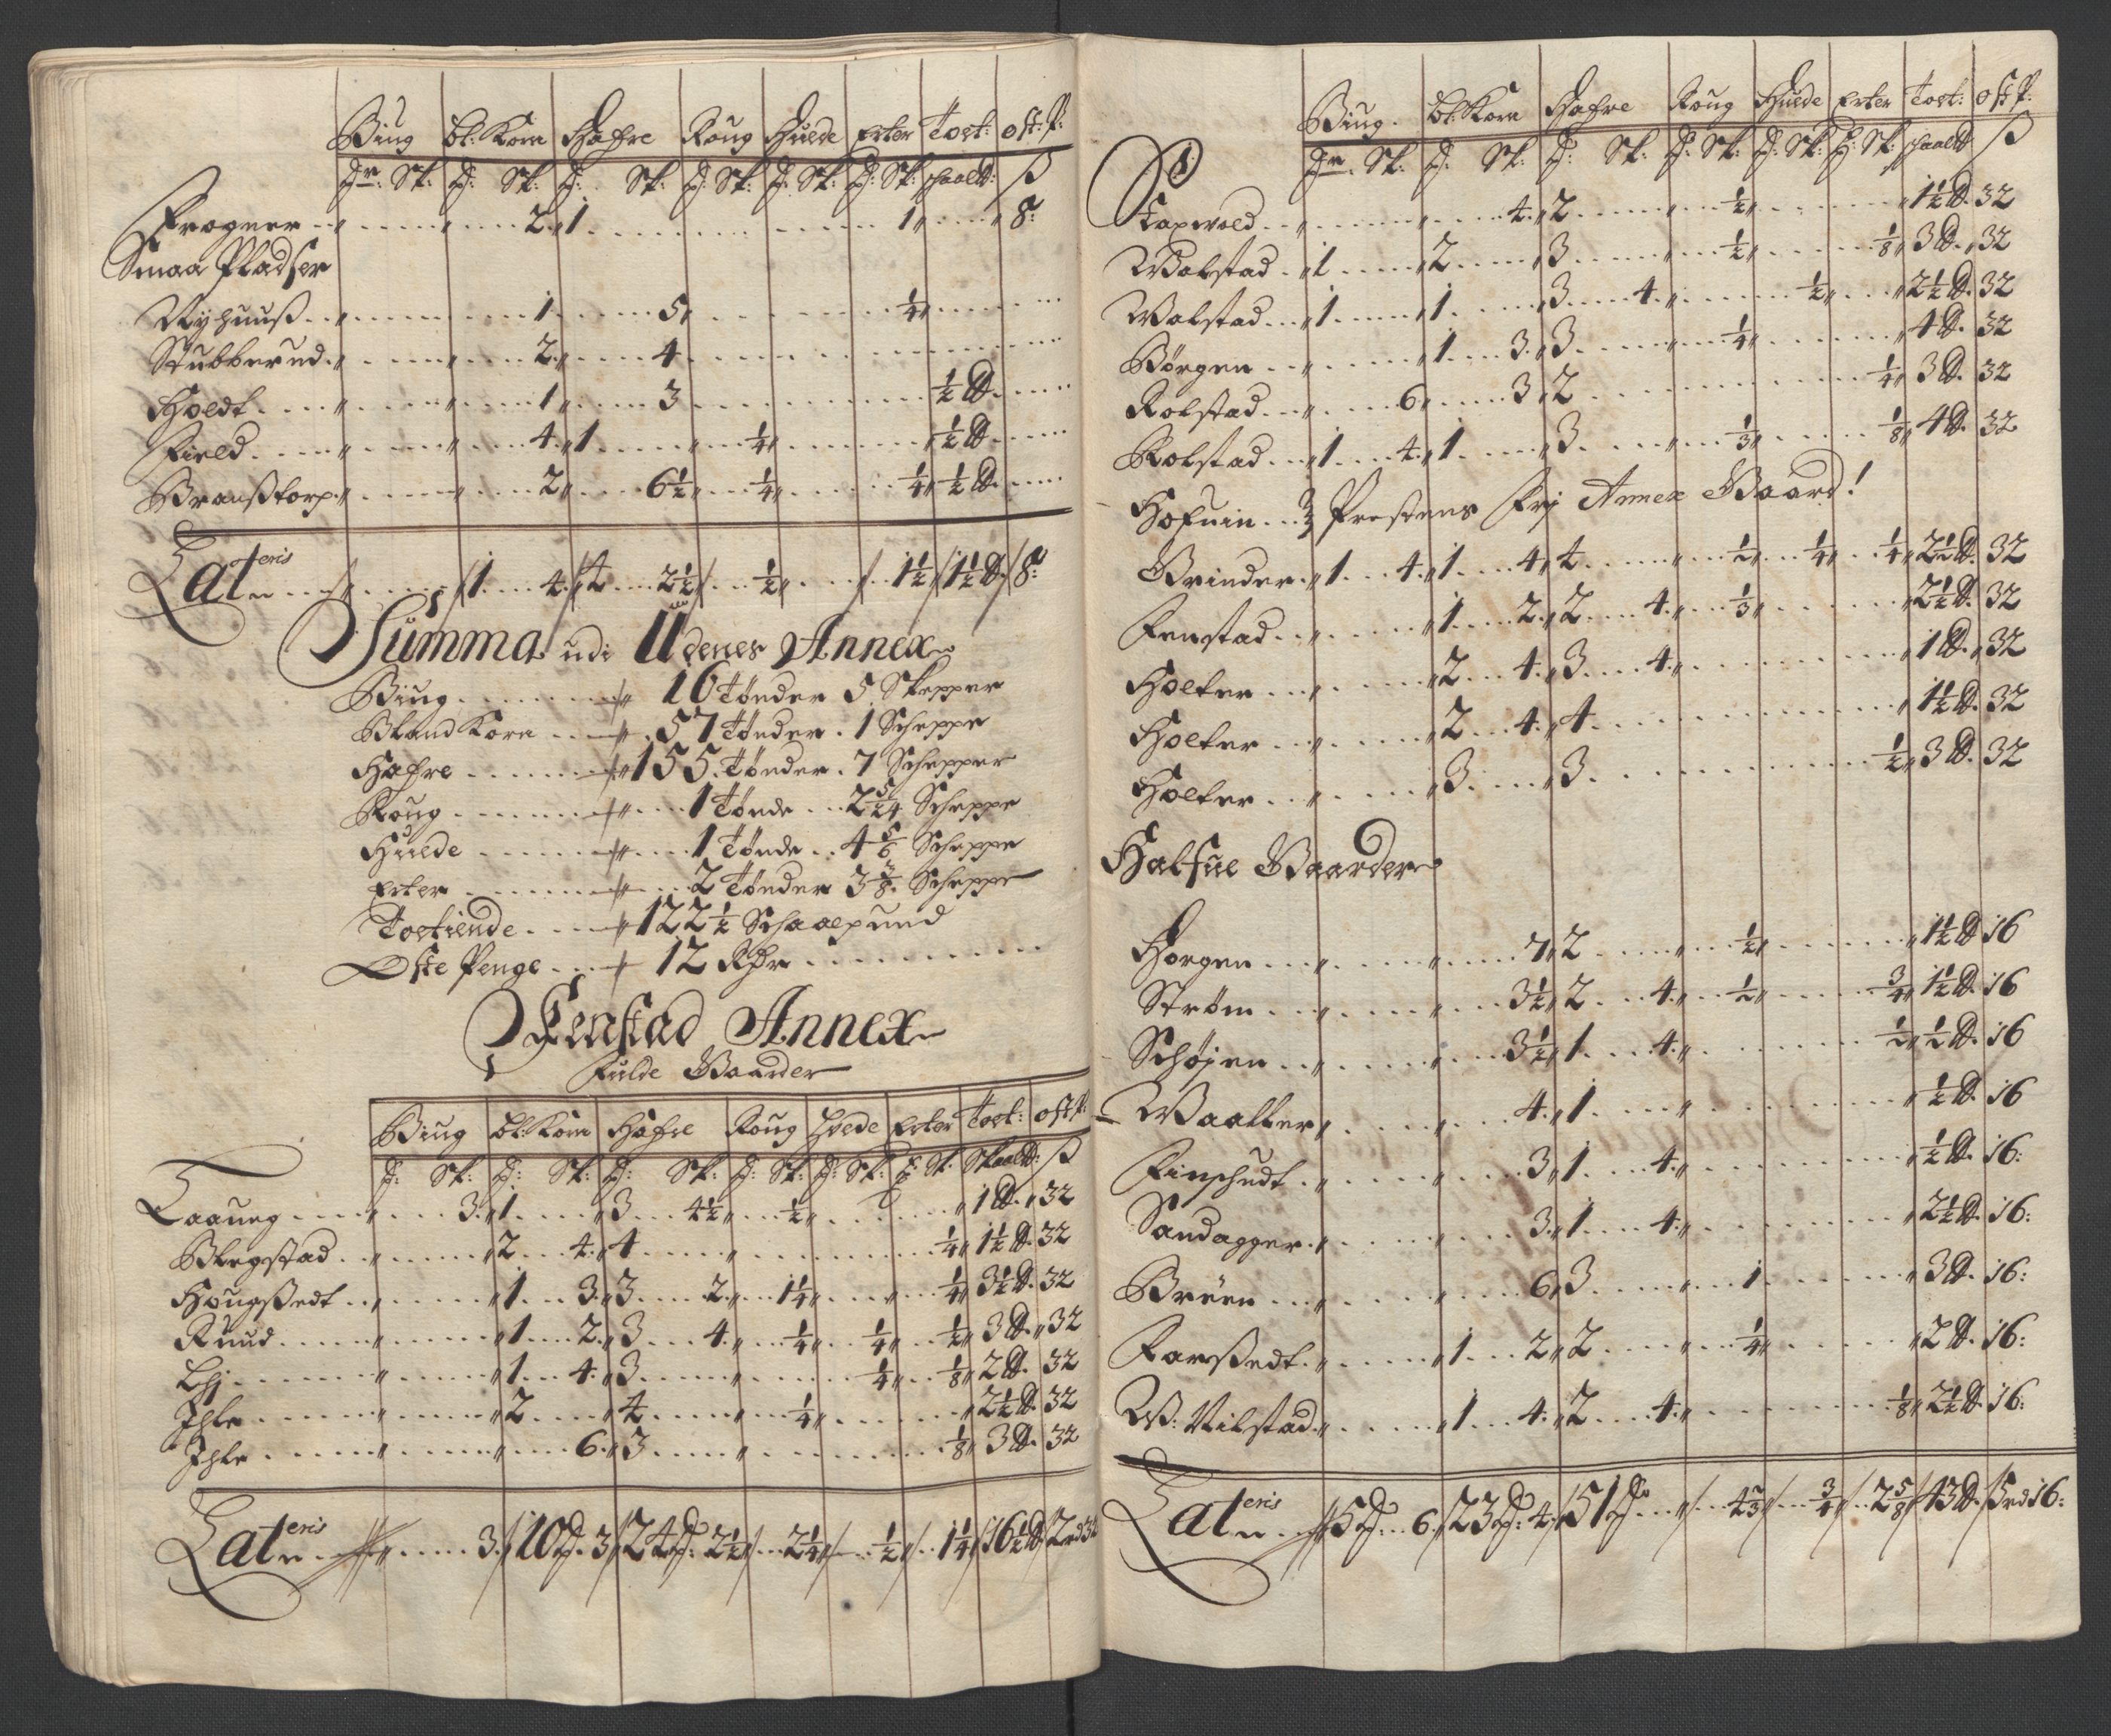 Biug Bl: Korn Hafre Roug Huede Erter Tost: Ost: P:
Tr: Sk: T: Sk: T: Sk: T: Sk: T: Sk: T: Sk: schaal℔: ß
Frogner 2 1 1 8:
Smaa Pladser
Nyhuuß 1 5 1/4
Stubberud 2 4
Holdt 1 3 1/2 ℔.
Field 4 1 1/4 1/2 ℔.
Branßtorp 2 6 1/2 1/4 1/4 1/2 ℔.
Lateris 1 4 4 2 1/2 1/2 1 1/2 1 1/2 ℔. 8:
Summa udi Udenes Annex
Biug 16 Tønder 5 Skepper
Bland Korn 57 Tønder 1 Scheppe
Hafre 155 Tønder 7 Schepper
Roug 1 Tønde 2 5/24 Scheppe
Huede 1 Tønde 4 5/6 Scheppe
Erter 2 Tønder 3 3/8 Scheppe
Tostiende 122 1/2 Schaalpund
Oste Penge 12 Rdr
Fenstad Annex
Fulde Gaarder
Biug Bl: Korn Hafre Roug Hvede Erter Tost: Ost P:
T: Sk: T: Sk: T: Sk: T: Sk: T: Sk: T: Sk: Skaal℔: ß
Laaueg 3 1 3 4 1/2 1/2 1 ℔. 32
Blegstad 2 4 4 1/4 1 1/2 ℔. 32
Hougßedt 1 3 3 2 1 1/4 1/4 3 1/2 ℔. 32
Ruud 1 2 3 4 1/4 1/4 1/2 3 ℔. 32
Lhj 1 4 3 1/4 1/8 2 ℔. 32
Ihle 2 4 1/4 2 1/2 ℔. 32
Ihle 6 3 1/8 3 ℔. 32
Lateris 3 10 T. 3 24 T. 2 1/2 2 1/4 1/2 1 1/4 16 1/2 ℔ 2 rd 32
Biug Bl: Korn Hafre Roug Huede Erter Tost: Ost P:
Tr. Sk: T: Sk: T: Sk: T: Sk: T: Sk: T: Sk: schaal℔ ß
Tapwold 4 2 1/2 1 1/2 ℔. 32
Wolstad 1 2 3 1/2 1/8 3 ℔. 32
Wolstad 1 1 3 4 1/2 2 1/2 ℔. 32
Børgen 1 3 3 1/4 4 ℔. 32
Rolstad 6 3 2 1/4 3 ℔. 32
Rolstad 1 4 1 3 1/3 1/8 4 ℔. 32
Hofuin Prestens Frj Annex Gaard!
Grinder 1 4 1 4 4 1/2 1/4 1/4 2 1/2 ℔. 32
Fenstad 1 2 2 4 1/3 2 1/2 ℔. 32
Holter 2 4 3 4 1 ℔. 32
Holter 2 4 4 1 1/2 ℔. 32
Holter 3 3 1/2 3 ℔. 32
Halfue Gaarder
Horgen 7 2 1/2 1 1/2 ℔ 16
Strøm 3 1/2 2 4 1/2 3/4 1 1/2 ℔. 16
Schøien 3 1/2 1 4 1/2 1/2 ℔. 16
Waaller 4 1 1/2 ℔. 16
Finschudt 3 1 4 1/2 ℔. 16:
Sandagger 3 1 4 2 1/2 ℔. 16:
Breen 6 3 1 3 ℔. 16:
Farßedt 1 2 2 1/4 2 ℔. 16:
W: Nilstad 1 4 2 4 1/8 2 1/2 ℔. 16:
Lateris 5 T. 6 23 T: 4 51 T. 4 2/3 3/4 2 5/8 43 ℔. 8 rd 16: